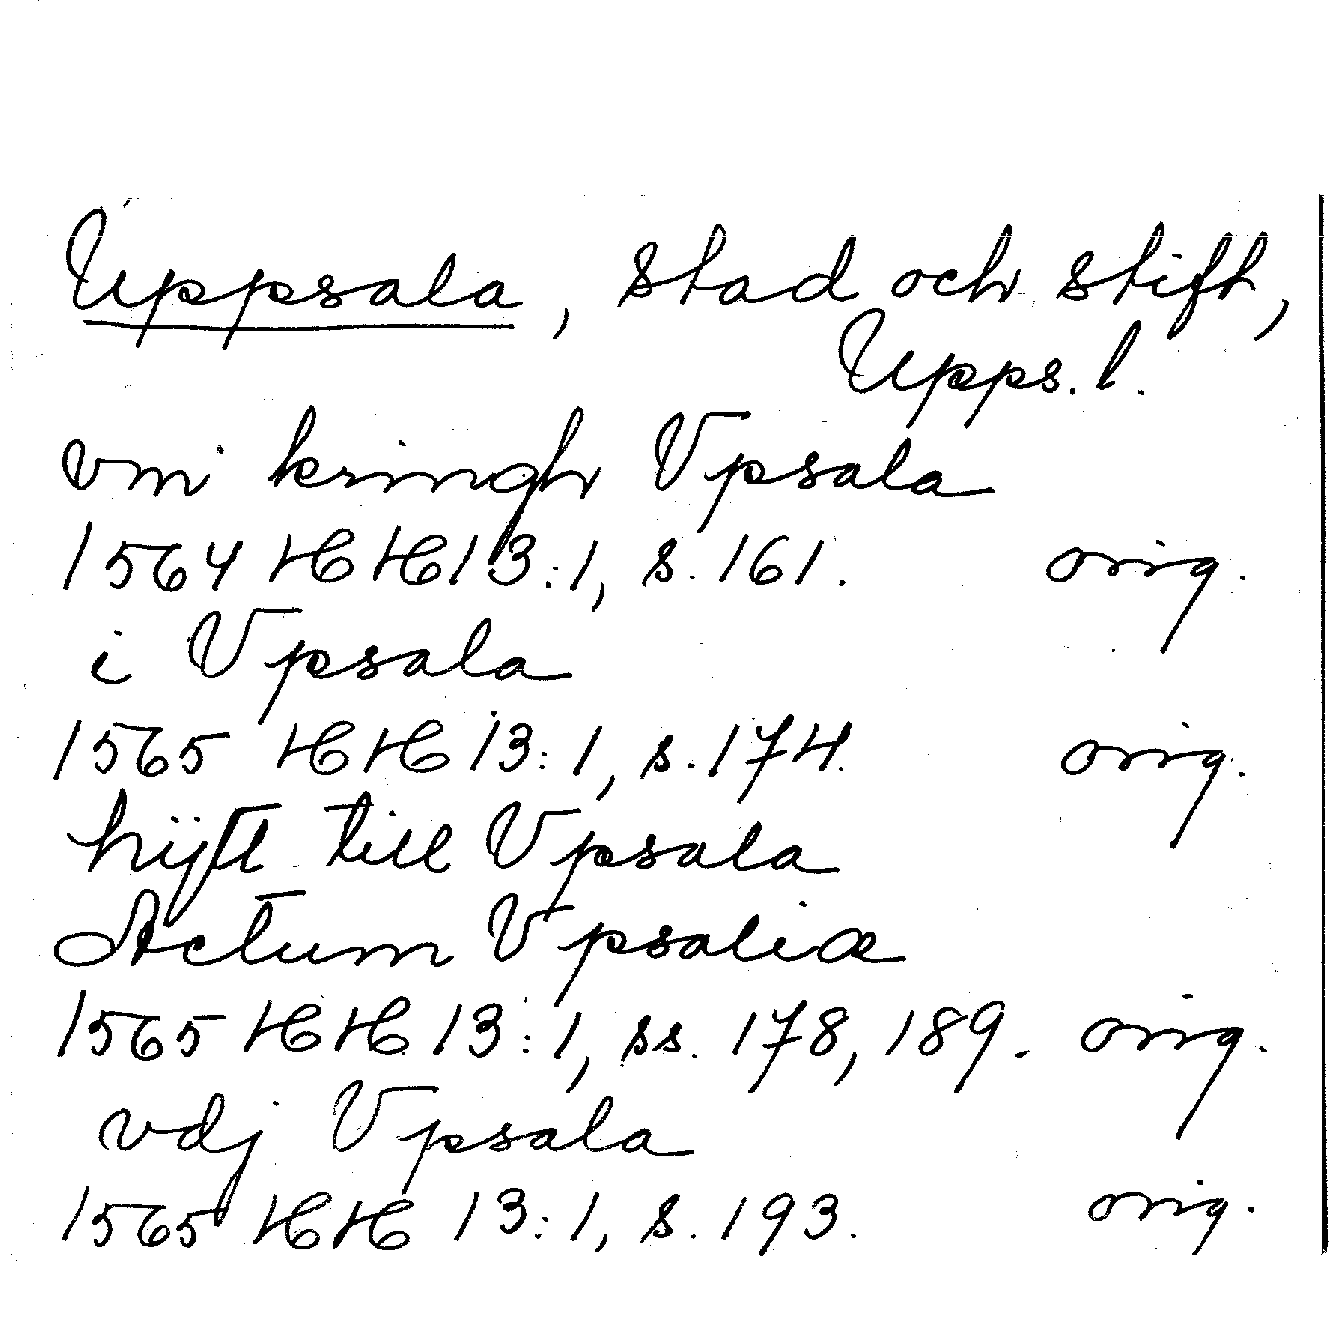 Uppsala, stad och stift,
Upps. l.
vm kringh Vpsala
1564 HH 13:1, s. 161. orig.
i Vpsala
1565 HH 13:1, s. 174. orig.
hijtt till Vpsala
Actum Vpsaliæ
1565 HH 13:1, ss. 178, 189. orig.
vdj Vpsala
1565 HH 13:1, s. 193. orig.